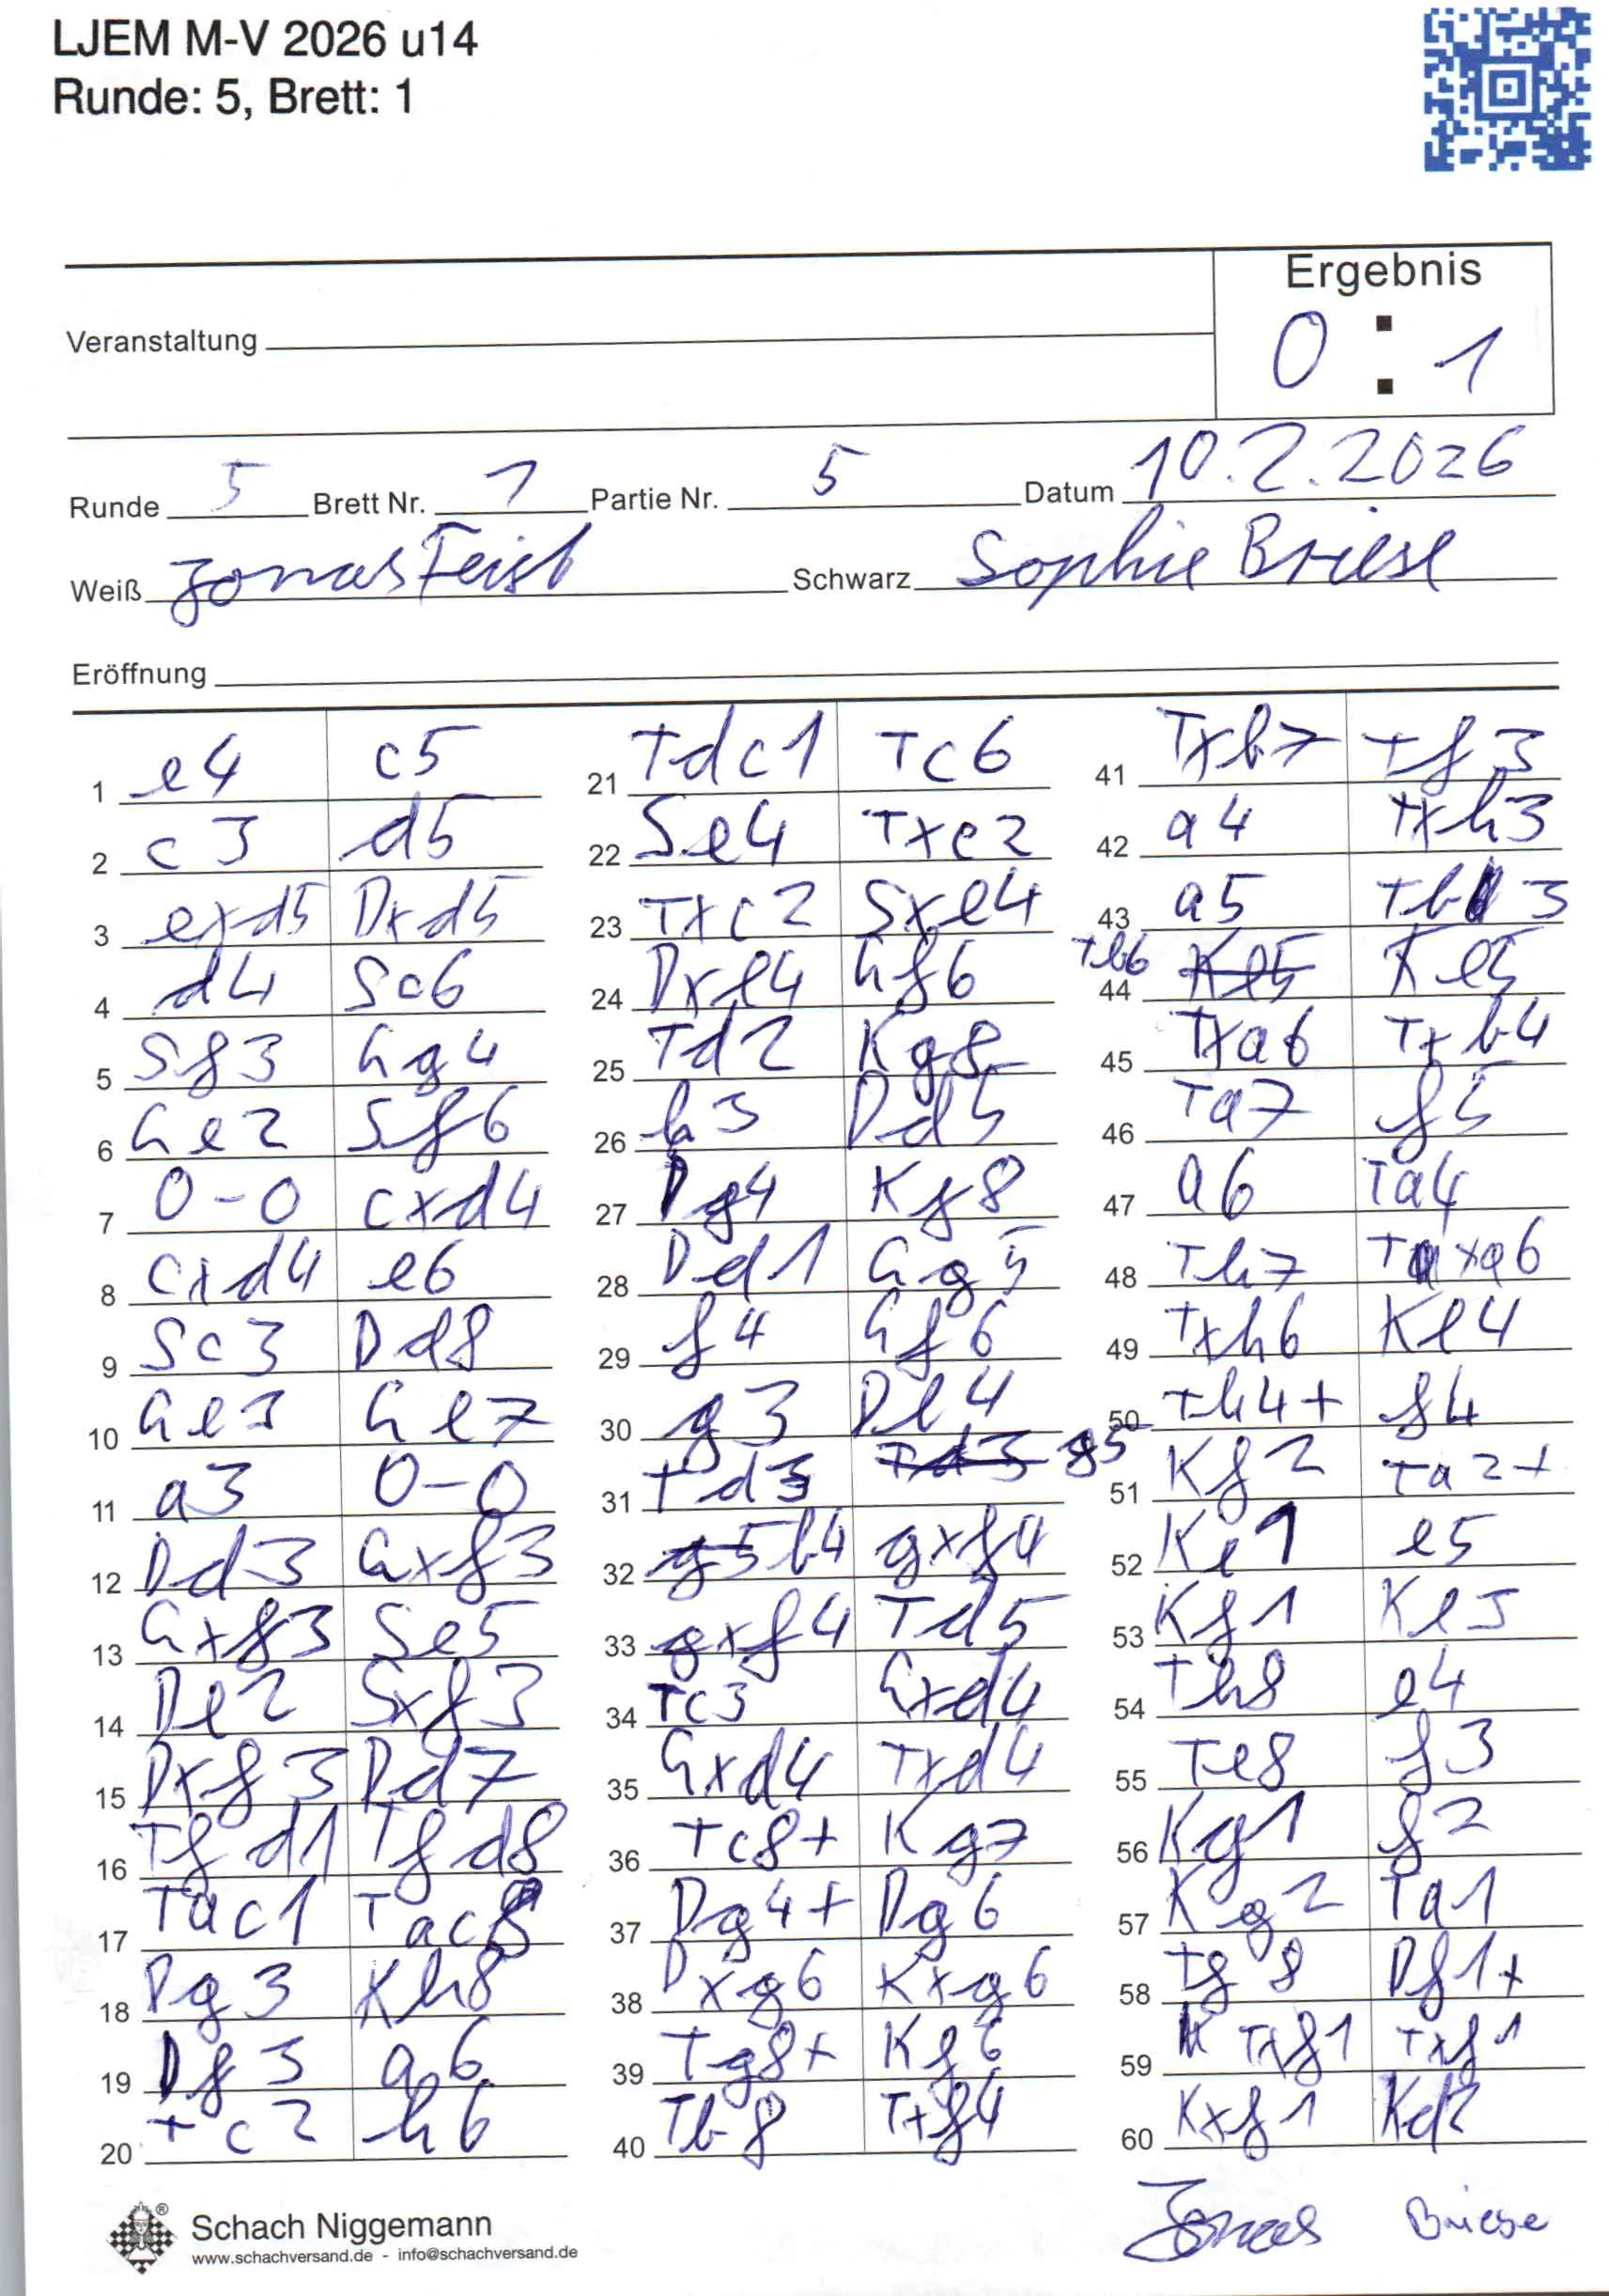 LJEM M-V 2026 u14
Runde: 5, Brett: 1
Ergebnis
0 : 1
Veranstaltung
Runde 5 Brett Nr. 1 Partie Nr. 5 Datum 10.2.2026
Weiß Jonas Feist Schwarz Sophie Briese
Eröffnung
1 e4 c5
2 c3 d5
3 exd5 Dxd5
4 d4 Sc6
5 Sf3 Lg4
6 Le2 Sf6
7 0-0 cxd4
8 cxd4 e6
9 Sc3 Dd8
10 Le3 Le7
11 a3 0-0
12 Dd3 Lxf3
13 Lxf3 Se5
14 De2 Sxf3
15 Dxf3 Dd7
16 Tfd1 Tfd8
17 Tac1 Tac8
18 Dg3 Kh8
19 Df3 a6
20 Tc2 h6
21 Tdc1 Tc6
22 Se4 Txc2
23 Txc2 Sxe4
24 Dxe4 Lf6
25 Td2 Kg8
26 h3 Dd5
27 Dg4 Kf8
28 Dd1 Lg5
29 f4 Lf6
30 g3 De4
31 Td3 g5
32 b4 gxf4
33 gxf4 Td5
34 Tc3 Lxd4
35 Lxd4 Txd4
36 Tc8+ Kg7
37 Dg4+ Dg6
38 Dxg6 Kxg6
39 Tg8+ Kf6
40 Tb8 Txf4
41 Txb7 Tf3
42 a4 Txh3
43 a5 Tb3
44 Tb6 Ke5
45 Txa6 Txb4
46 Ta7 f5
47 a6 Ta4
48 Th7 Txa6
49 Txh6 Ke4
50 Th4+ f4
51 Kf2 Ta2+
52 Ke1 e5
53 Kf1 Ke3
54 Th8 e4
55 Te8 f3
56 Kg1 f2
57 Kg2 Ta1
58 Tf8 Df1+
59 Txf1 Txf1
60 Kxf1 Kd2
Jonas Briese
Schach Niggemann
www.schachversand.de - info@schachversand.de